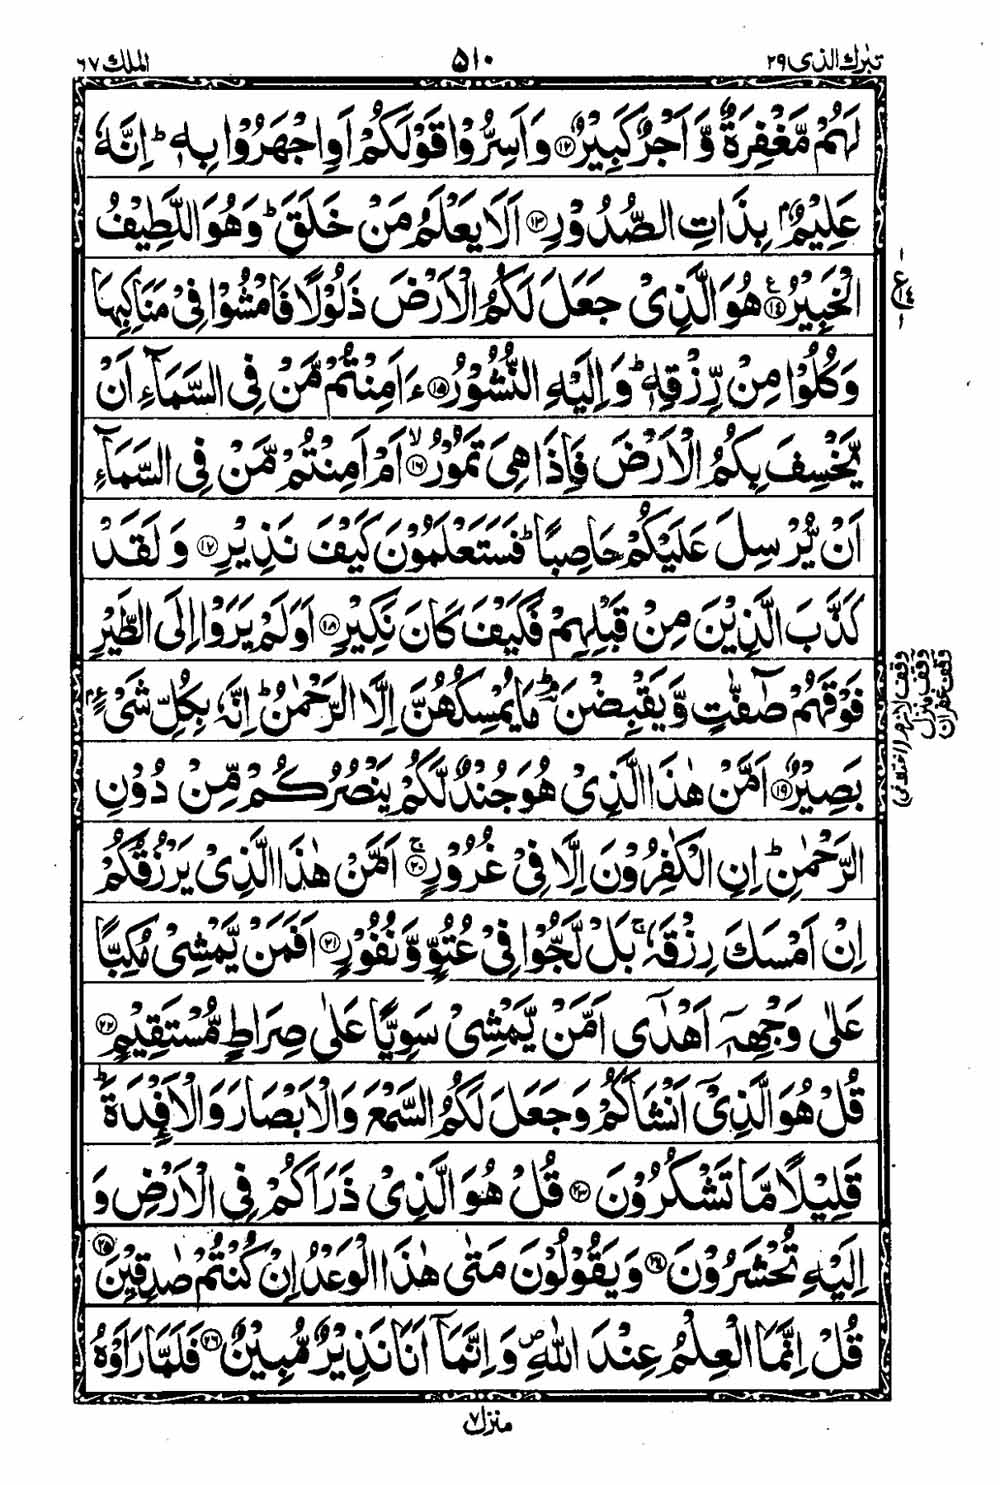 تبٰرك الذی ۲۹
۵۱۰
الملك ۶۷
لَهُمْ مَّغْفِرَةٌ وَّاَجْرٌ كَبِیْرٌ ۝۱۲ وَاَسِرُّوْا قَوْلَكُمْ اَوِ اجْهَرُوْا بِهٖ ؕ اِنَّهٗ
عَلِیْمٌۢ بِذَاتِ الصُّدُوْرِ ۝۱۳ اَلَا یَعْلَمُ مَنْ خَلَقَ ؕ وَهُوَ اللَّطِیْفُ
الْخَبِیْرُ ۝۱۴ ع هُوَ الَّذِیْ جَعَلَ لَكُمُ الْاَرْضَ ذَلُوْلًا فَامْشُوْا فِیْ مَنَاكِبِهَا
وَكُلُوْا مِنْ رِّزْقِهٖ ؕ وَاِلَیْهِ النُّشُوْرُ ۝۱۵ ءَاَمِنْتُمْ مَّنْ فِی السَّمَآءِ اَنْ
یَّخْسِفَ بِكُمُ الْاَرْضَ فَاِذَا هِیَ تَمُوْرُ ۝۱۶ ۙ اَمْ اَمِنْتُمْ مَّنْ فِی السَّمَآءِ
اَنْ یُّرْسِلَ عَلَیْكُمْ حَاصِبًا ؕ فَسَتَعْلَمُوْنَ كَیْفَ نَذِیْرِ ۝۱۷ وَلَقَدْ
كَذَّبَ الَّذِیْنَ مِنْ قَبْلِهِمْ فَكَیْفَ كَانَ نَكِیْرِ ۝۱۸ اَوَلَمْ یَرَوْا اِلَی الطَّیْرِ
فَوْقَهُمْ صٰٓفّٰتٍ وَّیَقْبِضْنَ ؔۘؕ مَا یُمْسِكُهُنَّ اِلَّا الرَّحْمٰنُ ؕ اِنَّهٗ بِكُلِّ شَیْءٍۭ
بَصِیْرٌ ۝۱۹ اَمَّنْ هٰذَا الَّذِیْ هُوَ جُنْدٌ لَّكُمْ یَنْصُرُكُمْ مِّنْ دُوْنِ
الرَّحْمٰنِ ؕ اِنِ الْكٰفِرُوْنَ اِلَّا فِیْ غُرُوْرٍ ۝۲۰ ۚ اَمَّنْ هٰذَا الَّذِیْ یَرْزُقُكُمْ
اِنْ اَمْسَكَ رِزْقَهٗ ۚ بَلْ لَّجُّوْا فِیْ عُتُوٍّ وَّنُفُوْرٍ ۝۲۱ اَفَمَنْ یَّمْشِیْ مُكِبًّا
عَلٰی وَجْهِهٖۤ اَهْدٰۤی اَمَّنْ یَّمْشِیْ سَوِیًّا عَلٰی صِرَاطٍ مُّسْتَقِیْمٍ ۝۲۲
قُلْ هُوَ الَّذِیْۤ اَنْشَاَكُمْ وَجَعَلَ لَكُمُ السَّمْعَ وَالْاَبْصَارَ وَالْاَفْـِٕدَةَ ؕ
قَلِیْلًا مَّا تَشْكُرُوْنَ ۝۲۳ قُلْ هُوَ الَّذِیْ ذَرَاَكُمْ فِی الْاَرْضِ وَ
اِلَیْهِ تُحْشَرُوْنَ ۝۲۴ وَیَقُوْلُوْنَ مَتٰی هٰذَا الْوَعْدُ اِنْ كُنْتُمْ صٰدِقِیْنَ ۝۲۵
قُلْ اِنَّمَا الْعِلْمُ عِنْدَ اللّٰهِ ۪ وَاِنَّمَاۤ اَنَا نَذِیْرٌ مُّبِیْنٌ ۝۲۶ فَلَمَّا رَاَوْهُ
وقف لازم (اختلافی)
وقف منزل
وقف غفران
منزل ۷